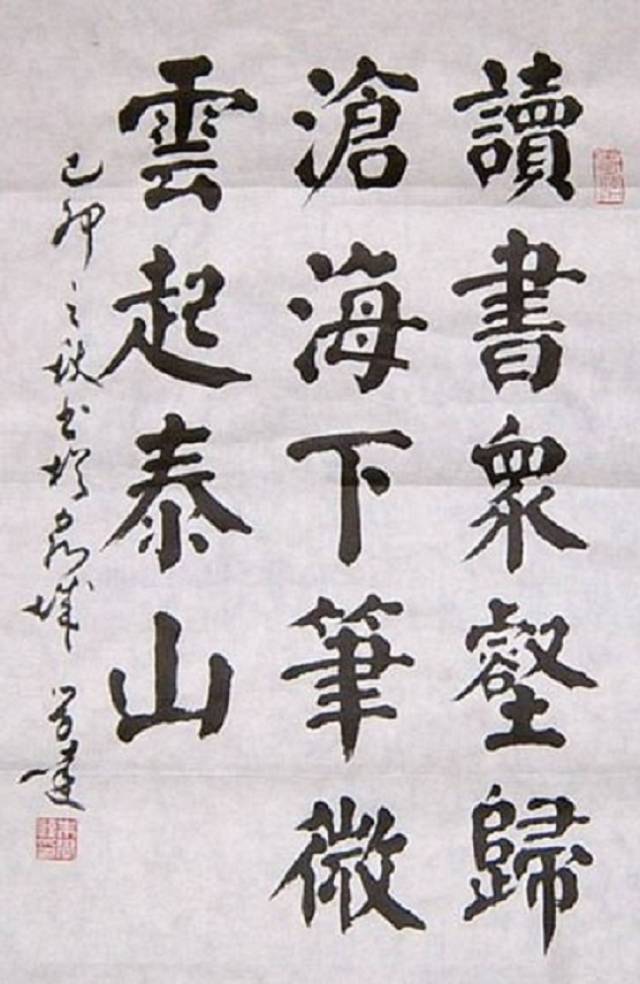 讀書衆壑歸
滄海下筆微
雲起泰山
己卯之秋書於泉城